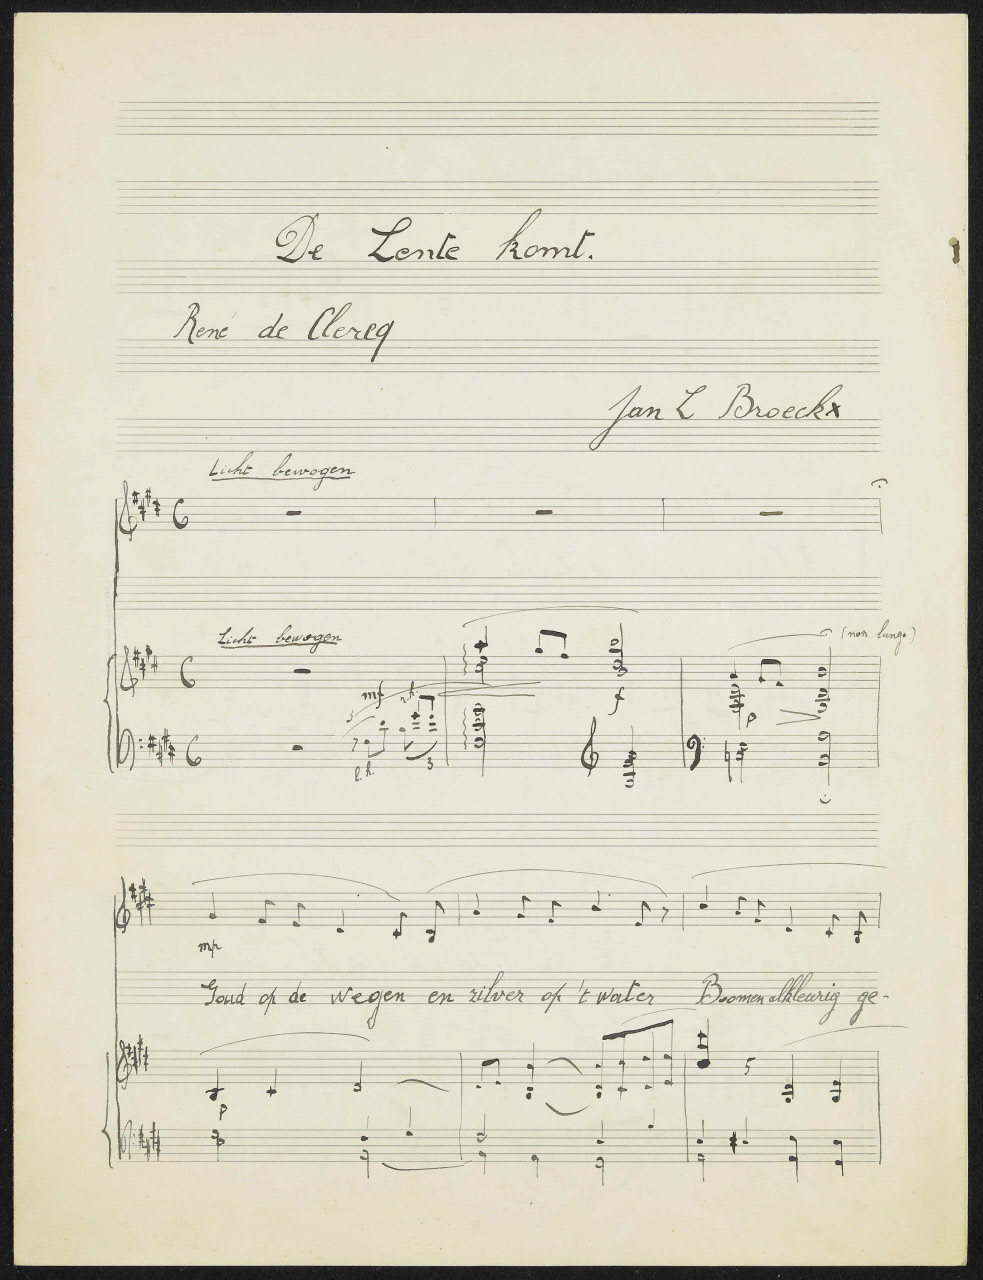 De Lente komt.
René de Clercq
Jan L Broeckx
Licht bewogen
Licht bewogen
(non lunga)
mf r.h.
f
p
5
7
l.h. 3
mp
Goud op de wegen en zilver op 't water Boomen alkleurig ge-
p